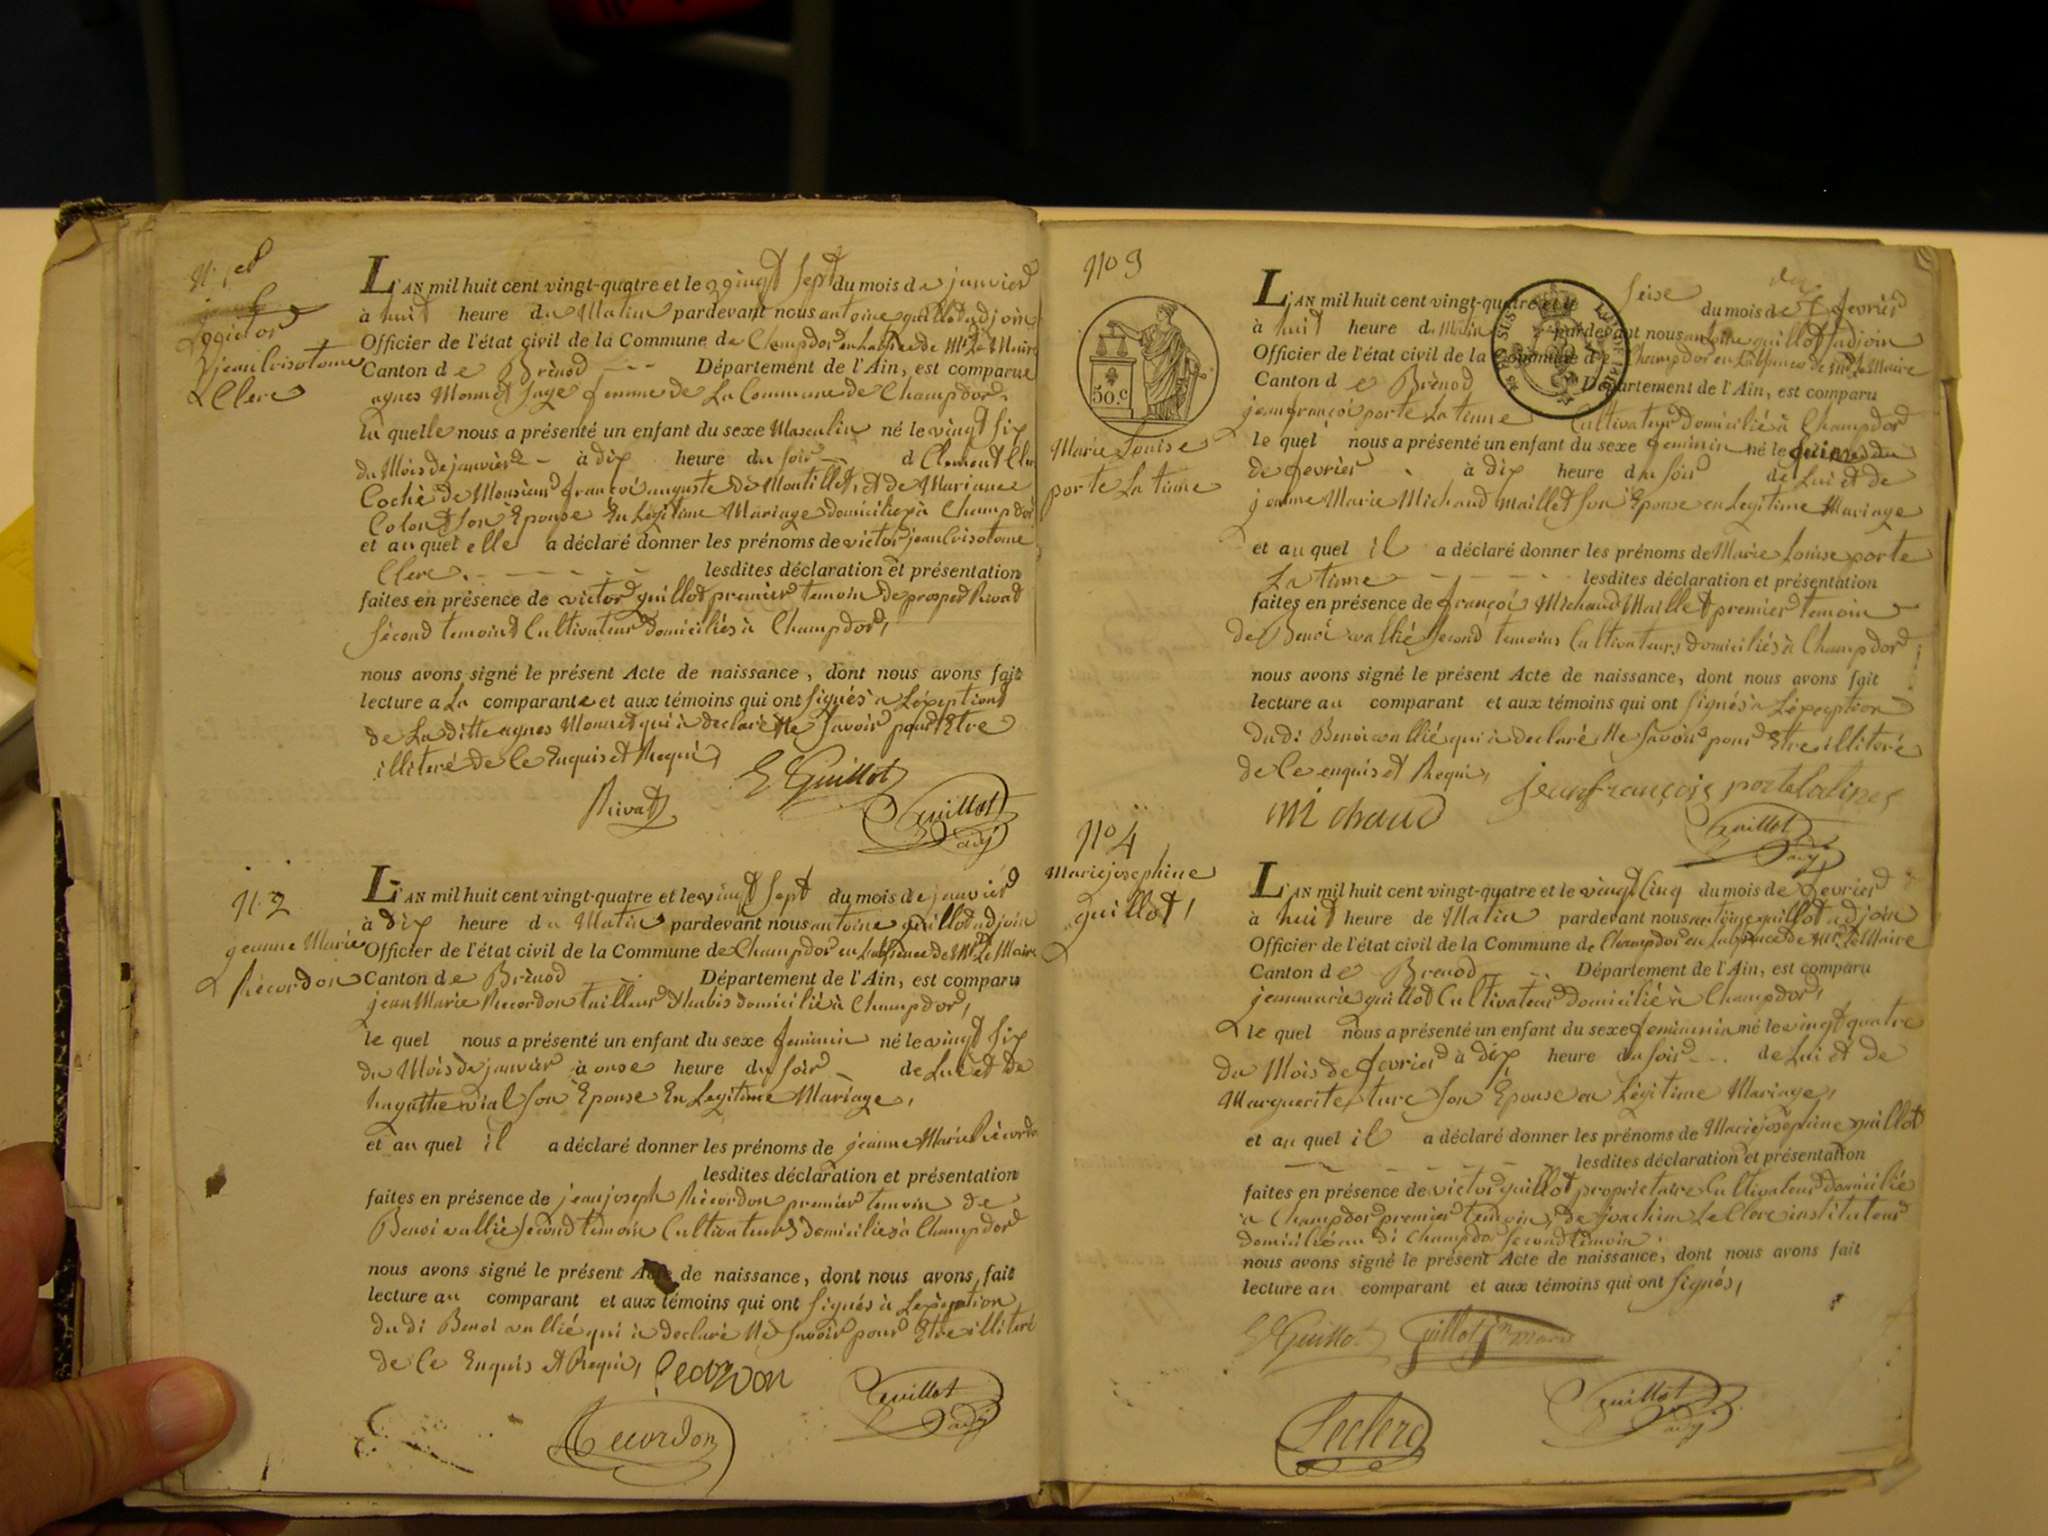 N. 1er
Victor
jean Crisotome
Clerc
L'AN mil huit cent vingt-quatre et le vingt sept du mois de janvier
à huit heure du Matin pardevant nous antoine guillot adjoin
Officier de l'état civil de la Commune de Champdor en Labsence de Mr Le Maire
Canton de Brénod Département de l'Ain, est comparue
agnes Monnet sage femme de La Commune de Champdor,
la quelle nous a présenté un enfant du sexe Masculin né le vingt six
du Mois de janvier à dix heure du soir d Clement Clerc
Coché de Monsieur françoi auguste de Montillet, et de Marianne
Colont son Epouse En Légitime Mariage domiciliés à Champdor
et au quel elle a déclaré donner les prénoms de victor jean Crisotome
Clerc. lesdites déclaration et présentation
faites en présence de victor guillot premier temoin de prosper Rivat
sécond temoint Cultivateur domiciliés à Champdor,
nous avons signé le présent Acte de naissance, dont nous avons fait
lecture a La comparante et aux témoins qui ont signés à Léxeption
de La ditte agnes Monnet qui à declaré Ne savoir pour Etre
illiteré de Ce Enquis et Requi,
V Guillot
Rivat
Guillot adj
N. 2
jeanne Marie
Récordon
L'AN mil huit cent vingt-quatre et le vingt sept du mois de janvier
à dix heure du Matin pardevant nous antoine guillot adjoin
Officier de l'état civil de la Commune de Champdor en Labsence de Mr Le Maire
Canton de Brénod Département de l'Ain, est comparu
jean Marie Recordon tailleur d'habis domicilié à Champdor,
le quel nous a présenté un enfant du sexe feminin né le vingt six
du Mois de janvier à onse heure du soir de Lui et de
hagathe vial son Epouse En Legitime Mariage,
et au quel il a déclaré donner les prénoms de jeanne Marie Récordon
lesdites déclaration et présentation
faites en présence de jean joseph Récordon premier temoin de
Benoi vallié second temoin Cultivateurs domiciliés à Champdor
nous avons signé le présent Acte de naissance, dont nous avons fait
lecture au comparant et aux témoins qui ont signés à Léxeption
du di Benoi vallié qui à declaré Ne savoir pour Etre illiteré
de Ce Enquis et Requi,
Recordon
Guillot adj
No 3
50.c
Marie Louise
porte La tinne
L'AN mil huit cent vingt-quatre et le seise du mois de fevrier
à huit heure du Matin pardevant nous antoine guillot adjoin
Officier de l'état civil de la Commune de Champdor en Labsence de Mr Le Maire
Canton de Brénod Département de l'Ain, est comparu
jean françoi porte La tinne Cultivateur domicilié à Champdor
le quel nous a présenté un enfant du sexe feminin né le quinse du
de fevrier à dix heure du soir de Lui et de
jeanne Marie Michaud Maillet son Epouse en Legitime Mariage
et au quel il a déclaré donner les prénoms de Marie Louise porte
La tinne lesdites déclaration et présentation
faites en présence de françoi Michaud Maillet premier temoin
de Benoi vallié second temoins Cultivateurs domiciliés à Champdor
nous avons signé le présent Acte de naissance, dont nous avons fait
lecture au comparant et aux témoins qui ont signés à Léxeption
du di Benoi vallié qui à declaré Ne savoir pour Etre illiteré
de Ce enquis et Requi,
jean françois porte latine
michaud
Guillot adj
No 4
Marie josephine
guillot,
L'AN mil huit cent vingt-quatre et le vingt Cinq du mois de fevrier
à huit heure de Matin pardevant nous antoine guillot adjoin
Officier de l'état civil de la Commune de Champdor en Labsence de Mr Le Maire
Canton de Brenod Département de l'Ain, est comparu
jean marie guillot Cultivateur domicilié à Champdor,
le quel nous a présenté un enfant du sexe feminin né le vingt quatre
du Mois de fevrier à dix heure du soir de Lui et de
Marguerite ture son Epouse en Légitime Mariage,
et au quel il a déclaré donner les prénoms de Marie josephine guillot
lesdites déclaration et présentation
faites en présence de victor guillot proprietaire Cultivateur domicilié
à Champdor premier temoin, de joachim Le Clerc instituteur
domicilié au di Champdor second temoin
nous avons signé le présent Acte de naissance, dont nous avons fait
lecture au comparant et aux témoins qui ont signés,
V Guillot Guillot jn marie
Leclerc
Guillot adj